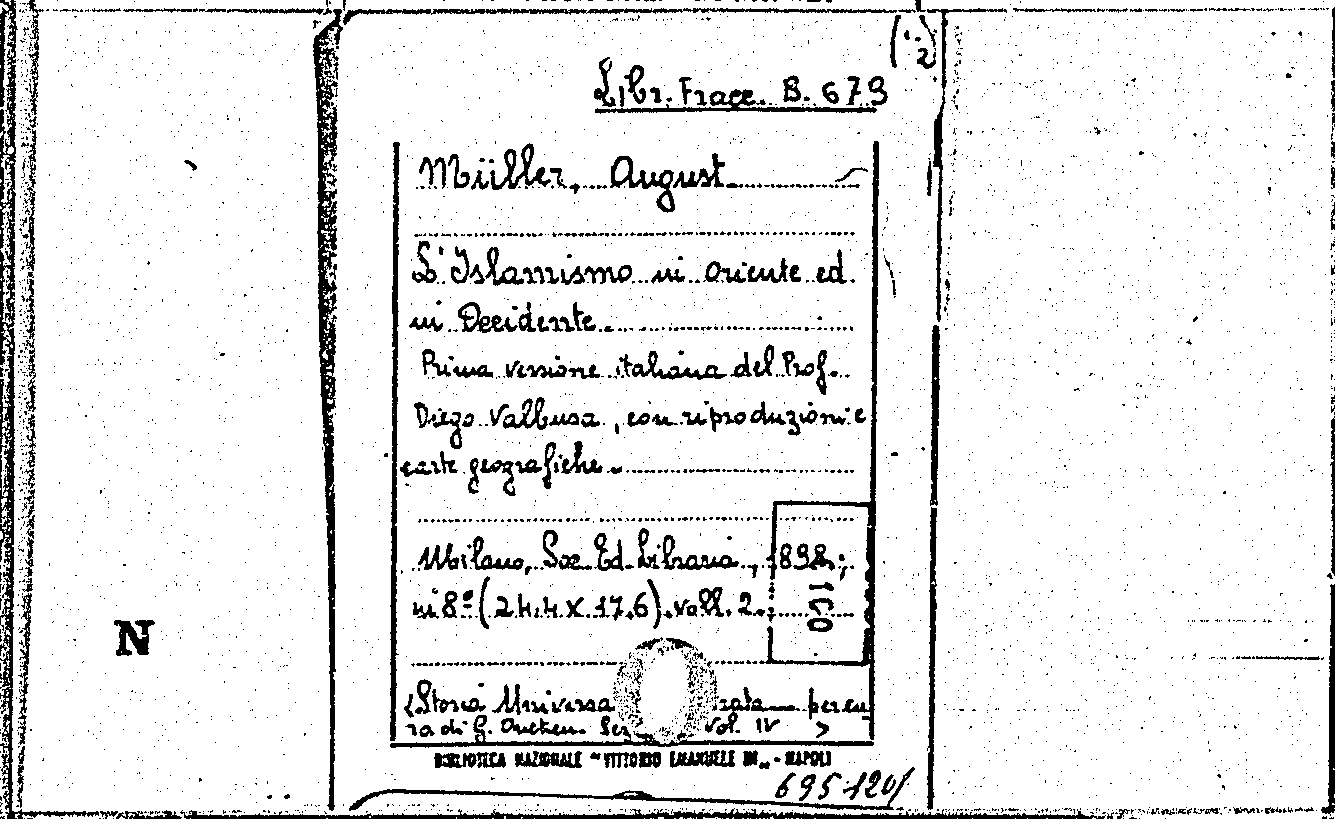 (1-2)
Libr. Fracc. B. 679
Müller, August.
L'Islamismo in Oriente ed
in Occidente.
Prima versione italiana del Prof.
Diego Valbusa, con riproduzioni e
carte geografiche.
Milano, Soc. Ed. Libraria, 1898;
in 8º (24,4 x 17,6). voll. 2.
100
N
<Storia Universa rata per cu
ra di G. Oncken. Se vol. IV >
BIBLIOTECA NAZIONALE "VITTORIO EMANUELE III" - NAPOLI
695120/